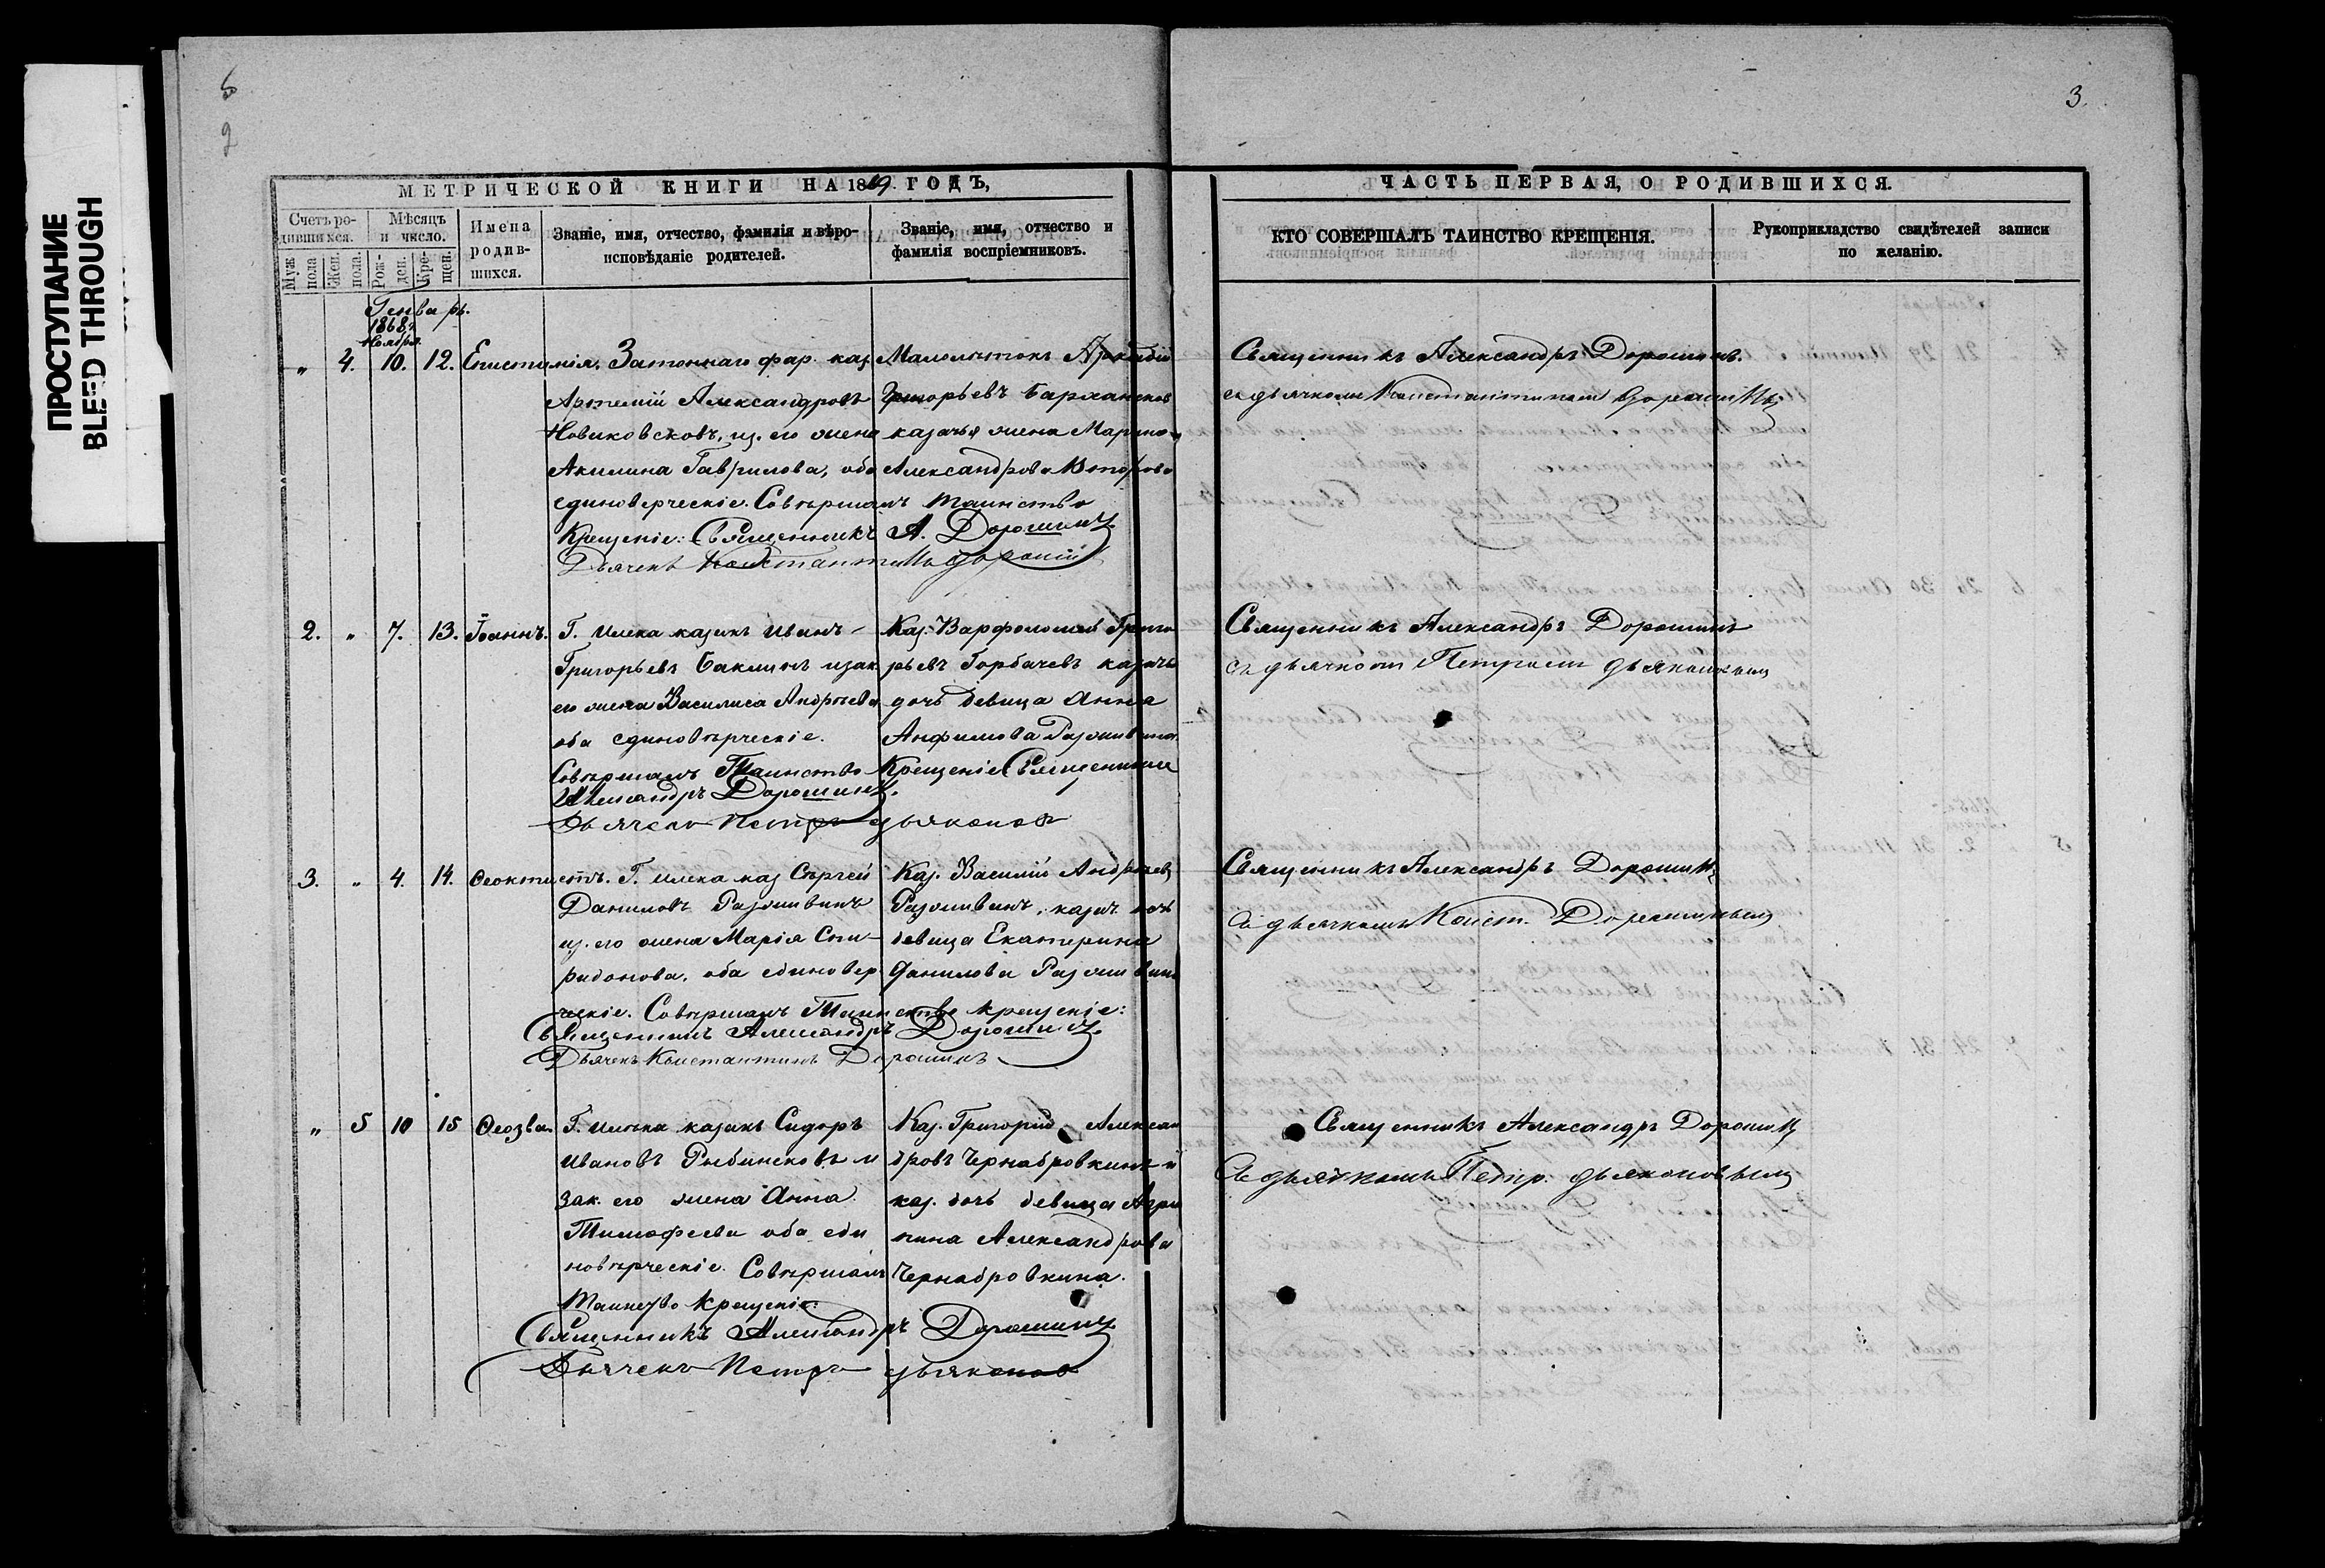 ПРОСТУПАНИЕ
BLEED THROUGH
3.
МЕТРИЧЕСКОЙ КНИГИ НА 1869 ГОДЪ,
Счетъ родившихся.
Мѣсяцъ и число.
Имена родившихся.
Званіе, имя, отчество, фамилія и вѣроисповѣданіе родителей.
Званіе, имя, отчество и фамилія воспріемниковъ.
Муж пола
Жен. пола.
Рожден.
Крещен.
Генварь.
1868 г.
Ноября
„ 4. 10. 12. Епистимія. Затоннаго фар. каз
Артемій Александровъ
Новиковсковъ, из. его жена
Акилина Гаврилова, оба
единоверческіе. Совѣршалъ Таинство
Крещеніе: Священникъ А. Дорошинъ
Дьячекъ Константинъ Дорошин
Малолѣтокъ Аркадій
Григорьевъ Бархансков
казачья жена Марина
Александрова Второва
2. „ 7. 13. Іоаннъ. Г. Илека казакъ Иванъ
Григорьевъ Баклинъ изак
его жена Василиса Андрѣева
оба единовѣрческіе.
Совѣршалъ Таинство Крещеніе Священникъ
Александръ Дорошинъ.
Дьячекъ Петръ Дьяконов
Каз. Варфоломей Григо
рьевъ Горбачевъ казачь
дочь девица Анна
Анфимова Разживина
3. „ 4. 14. Ѳеоктистъ. Г. Илека каз Сѣргей
Даниловъ Разживинъ
из. его жена Марія Спи-
ридонова. оба единовер
ческіе. Совѣршалъ Таинство крещеніе:
Священникъ Александръ Дорошинъ
Дьячекъ Константинъ Дорошинъ
Каз. Василій Андрѣевъ
Разживинъ, казач. дочь
девица Екатерина
Данилова Разживин
„ 5 10 15 Ѳеозва. Г. Илека казакъ Сидоръ
Ивановъ Рыбинсковъ и
зак. его жена Анна
Тимофеева оба еди
новѣрческіе. Совѣршалъ
Таинство Крещеніе:
Священникъ Александръ Дорошинъ
Дьячекъ Петръ Дьяконов
Каз. Григорій Алексан
дровъ Чернабровкинъ и
каз. дочь девица Агри
пина Александрова
Чернабровкина.
ЧАСТЬ ПЕРВАЯ, О РОДИВШИХСЯ.
КТО СОВЕРШАЛЪ ТАИНСТВО КРЕЩЕНІЯ.
Рукоприкладство свидѣтелей записи по желанію.
Священникъ Александръ Дорошинъ.
съ дьячкомъ Константиномъ Дорошинымъ
Священникъ Александръ Дорошинъ
съ дьячкомъ Петромъ Дьяконовымъ
Священникъ Александръ Дорошинъ
съ дьячкомъ Конст. Дорошинымъ
Священникъ Александръ Дорошинъ
Съ дьячкомъ Петр. дьяконовымъ